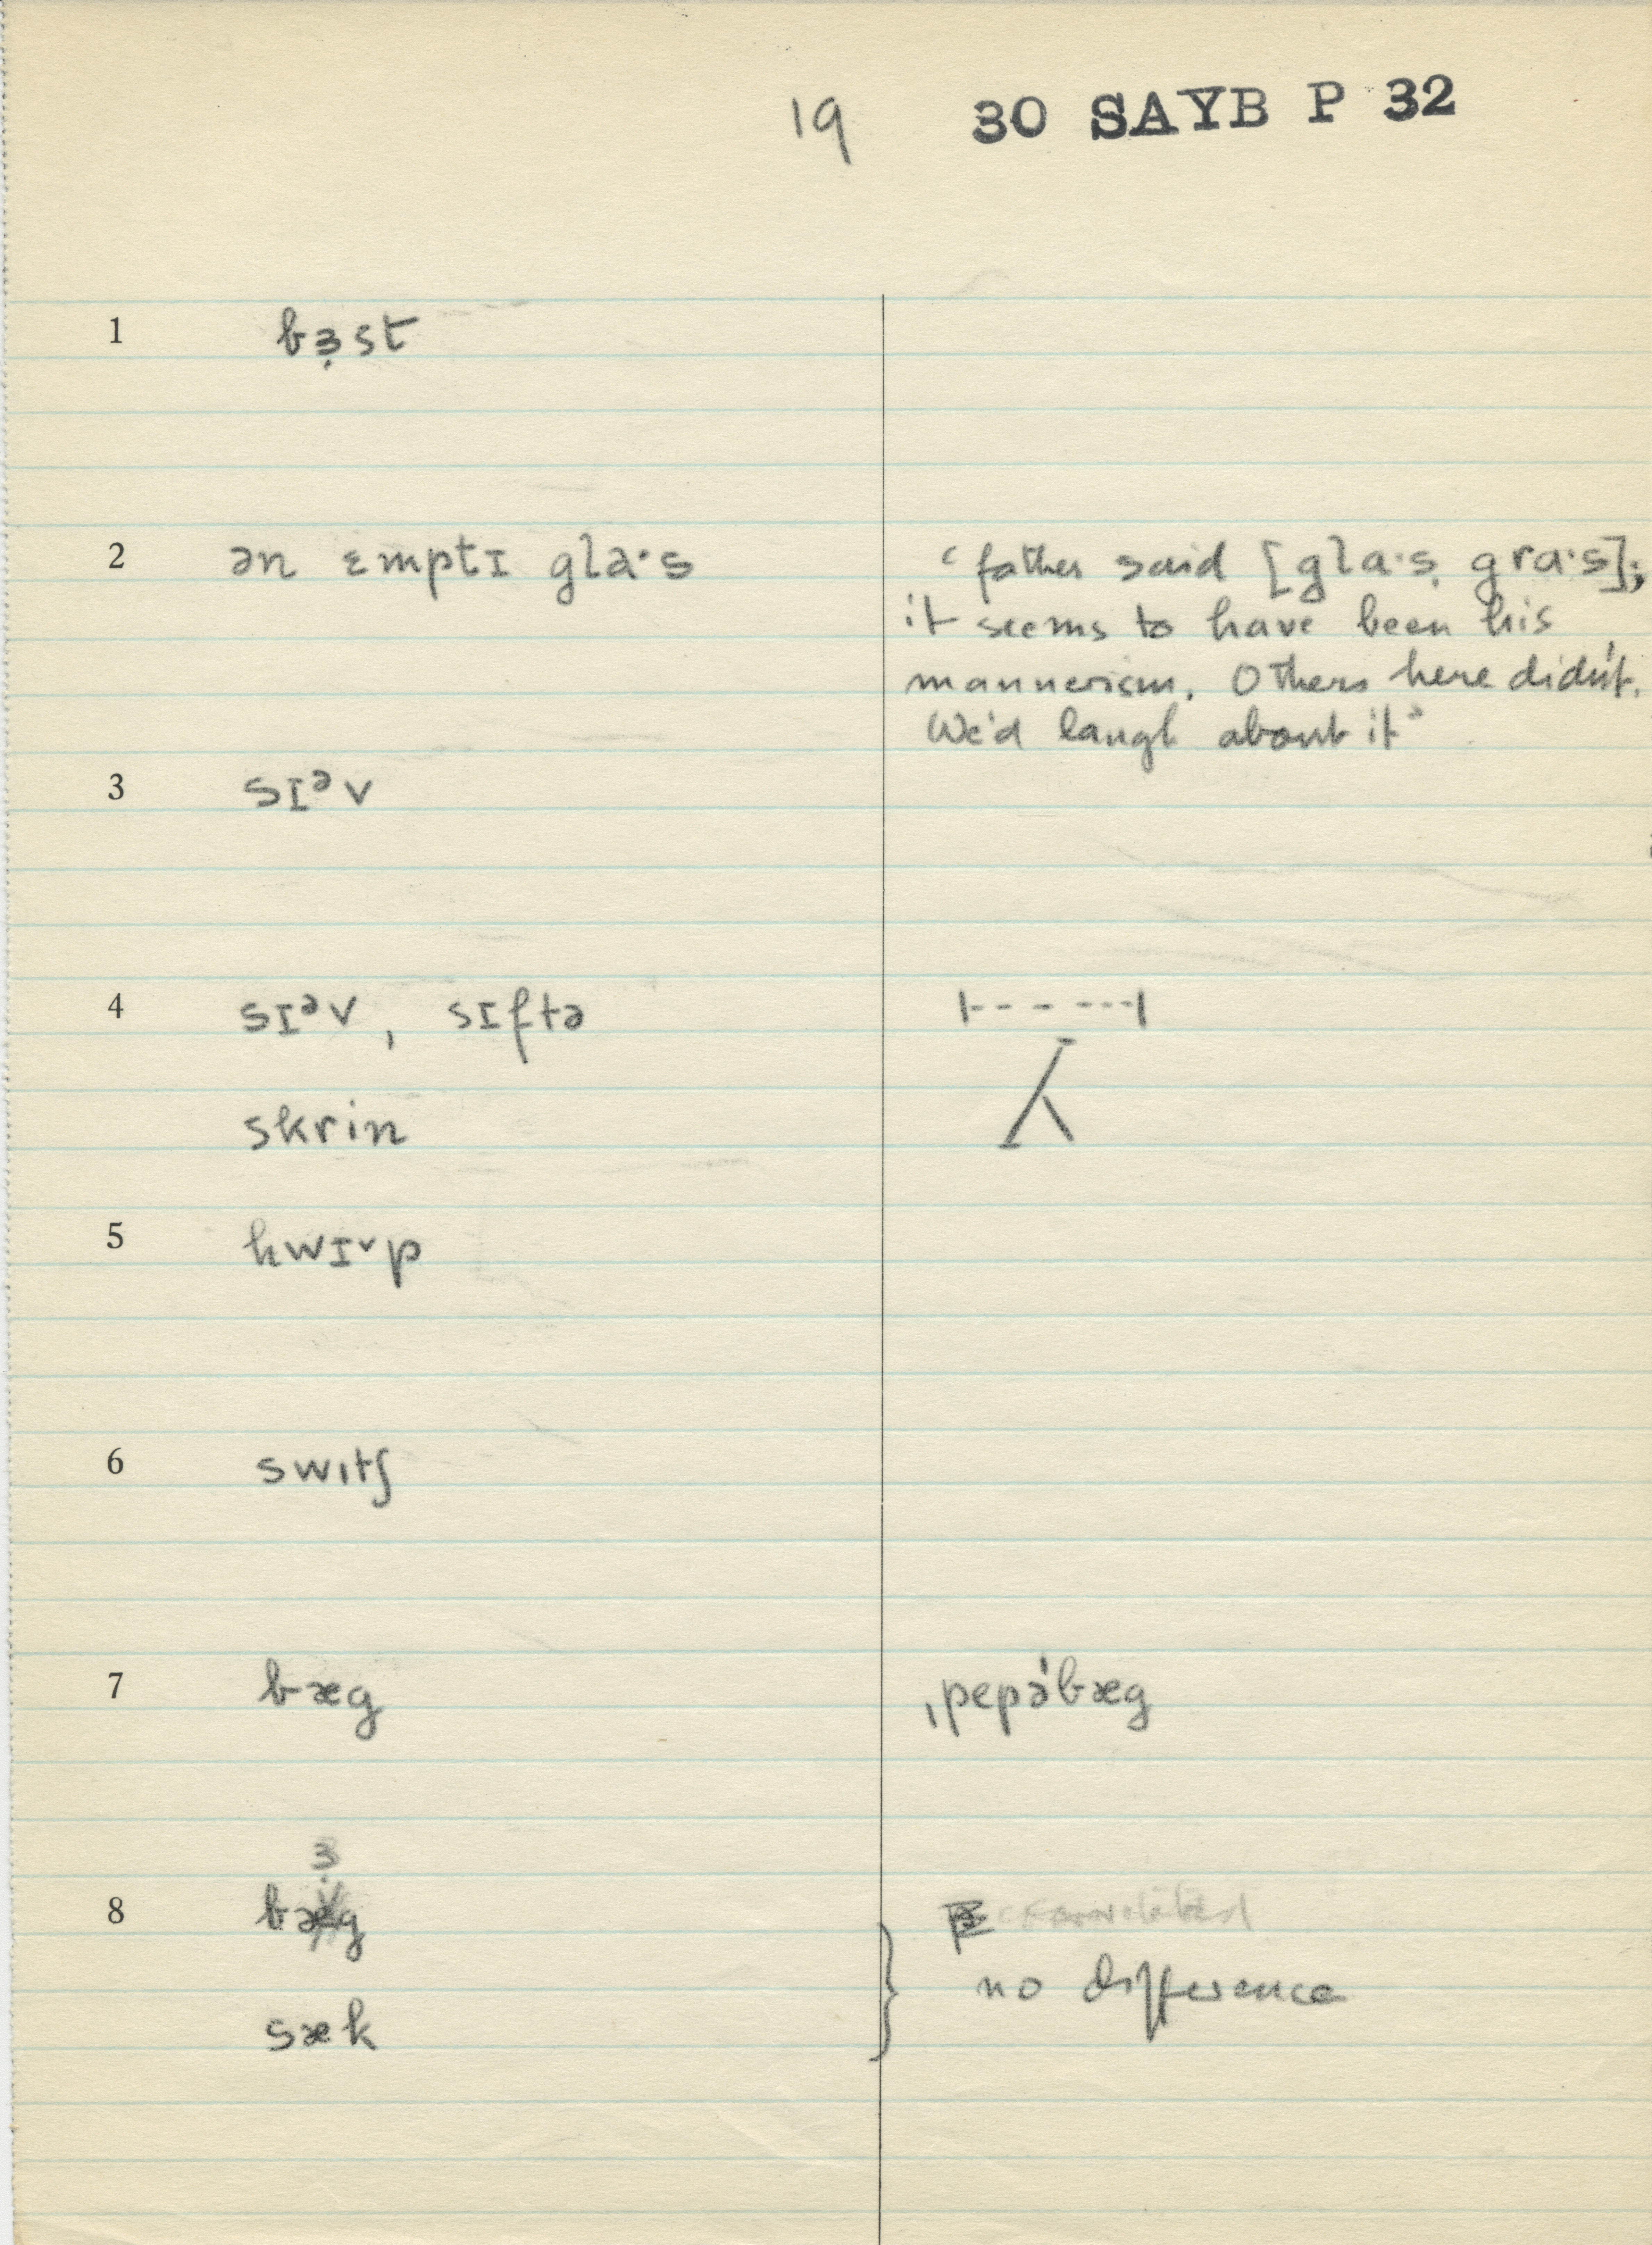 19 30 SAYB P 32
1 bɜ̣st
2 ən ɛmptɪ gla·s ‘father said [gla·s, gra·s];
it seems to have been his
mannerism. Others here didn't.
We'd laugh about it’
3 sɪᵊv
4 sɪᵊv, sɪftə
skrin
5 hwɪ˅p
6 swɪtʃ
7 bæg ˌpepəˈbæg
ɜ
8 bæg
no difference
sæk